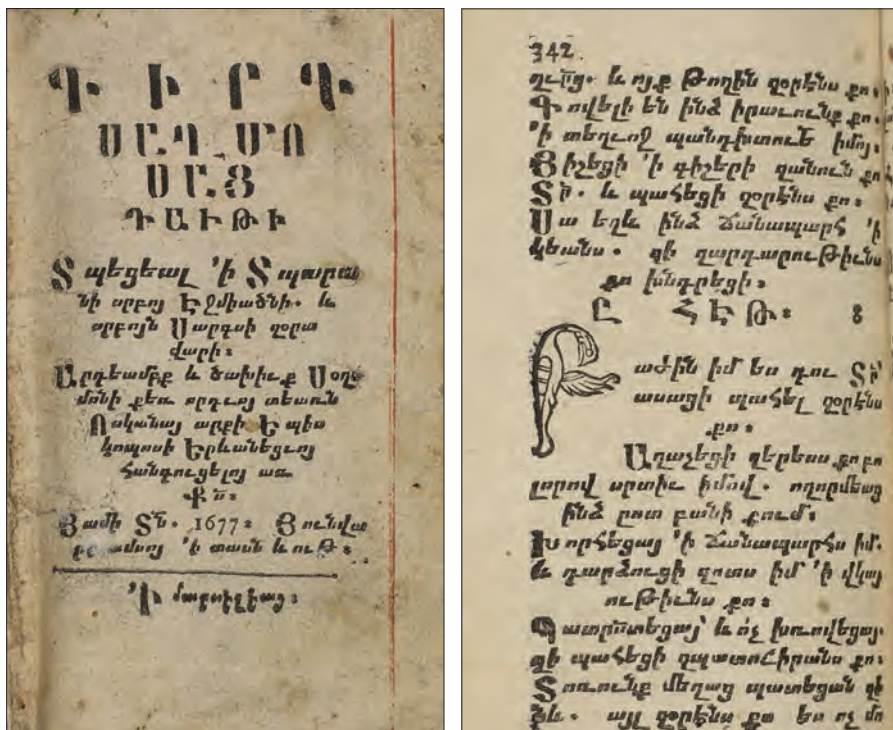 ԳԻՐԳ
ՍԱՂՄՈ
ՍԱՑ
ԴԱՒԹԻ
Տպեցեալ 'ի Տպարա
նի սրբոյ Էջմիածնի. և
սրբոյն Սարգսի զօրա
վարի։
Արդեամբք և ծախիւք Սօղո
մօնի քեռ որդւոյ տեառն
Ոսկանայ արքի Եպիս
կոպոսի Երևանեցւոյ
Հանգուցելոյ առ
Քն։
Յամի Տն. 1677։ Յունվա
րի ամսոյ 'ի տասն և ութ։
'Ի մարսիլիայ։
342
և ոյք Թողին զօրէնս քո։
Գովելի են ինձ իրաւունք քո.
'ի տեղւոջ պանդխտուե իմոյ։
Յիշեցի 'ի գիշերի զանուն քո
Տր. և պահեցի զօրէնս քո։
Սա եղև ինձ ճանապարհ 'ի
կեանս. զի զարդարութիւնս
քո խնդրեցի։
Ը ՀԷԹ։ 8
Բաժին իմ ես դու Տր
ասացի պահել զօրէնս
քո։
Աղաչեցի զերեսս քո բո
լորով սրտիւ իմով. ողորմեաց
ինձ ըստ բանի քում։
Խորհեցայ 'ի ճանապարհս իմ.
և դարձուցի զոտս իմ 'ի վկայ
ութիւնս քո։
Պատրաստեցայ և ոչ խռովեցայ.
զի պահեցի զպատուիրանս քո։
Տոռունք մեղաց պատեցան զի
ձև. այլ զօրէնս քո ես ոչ մո